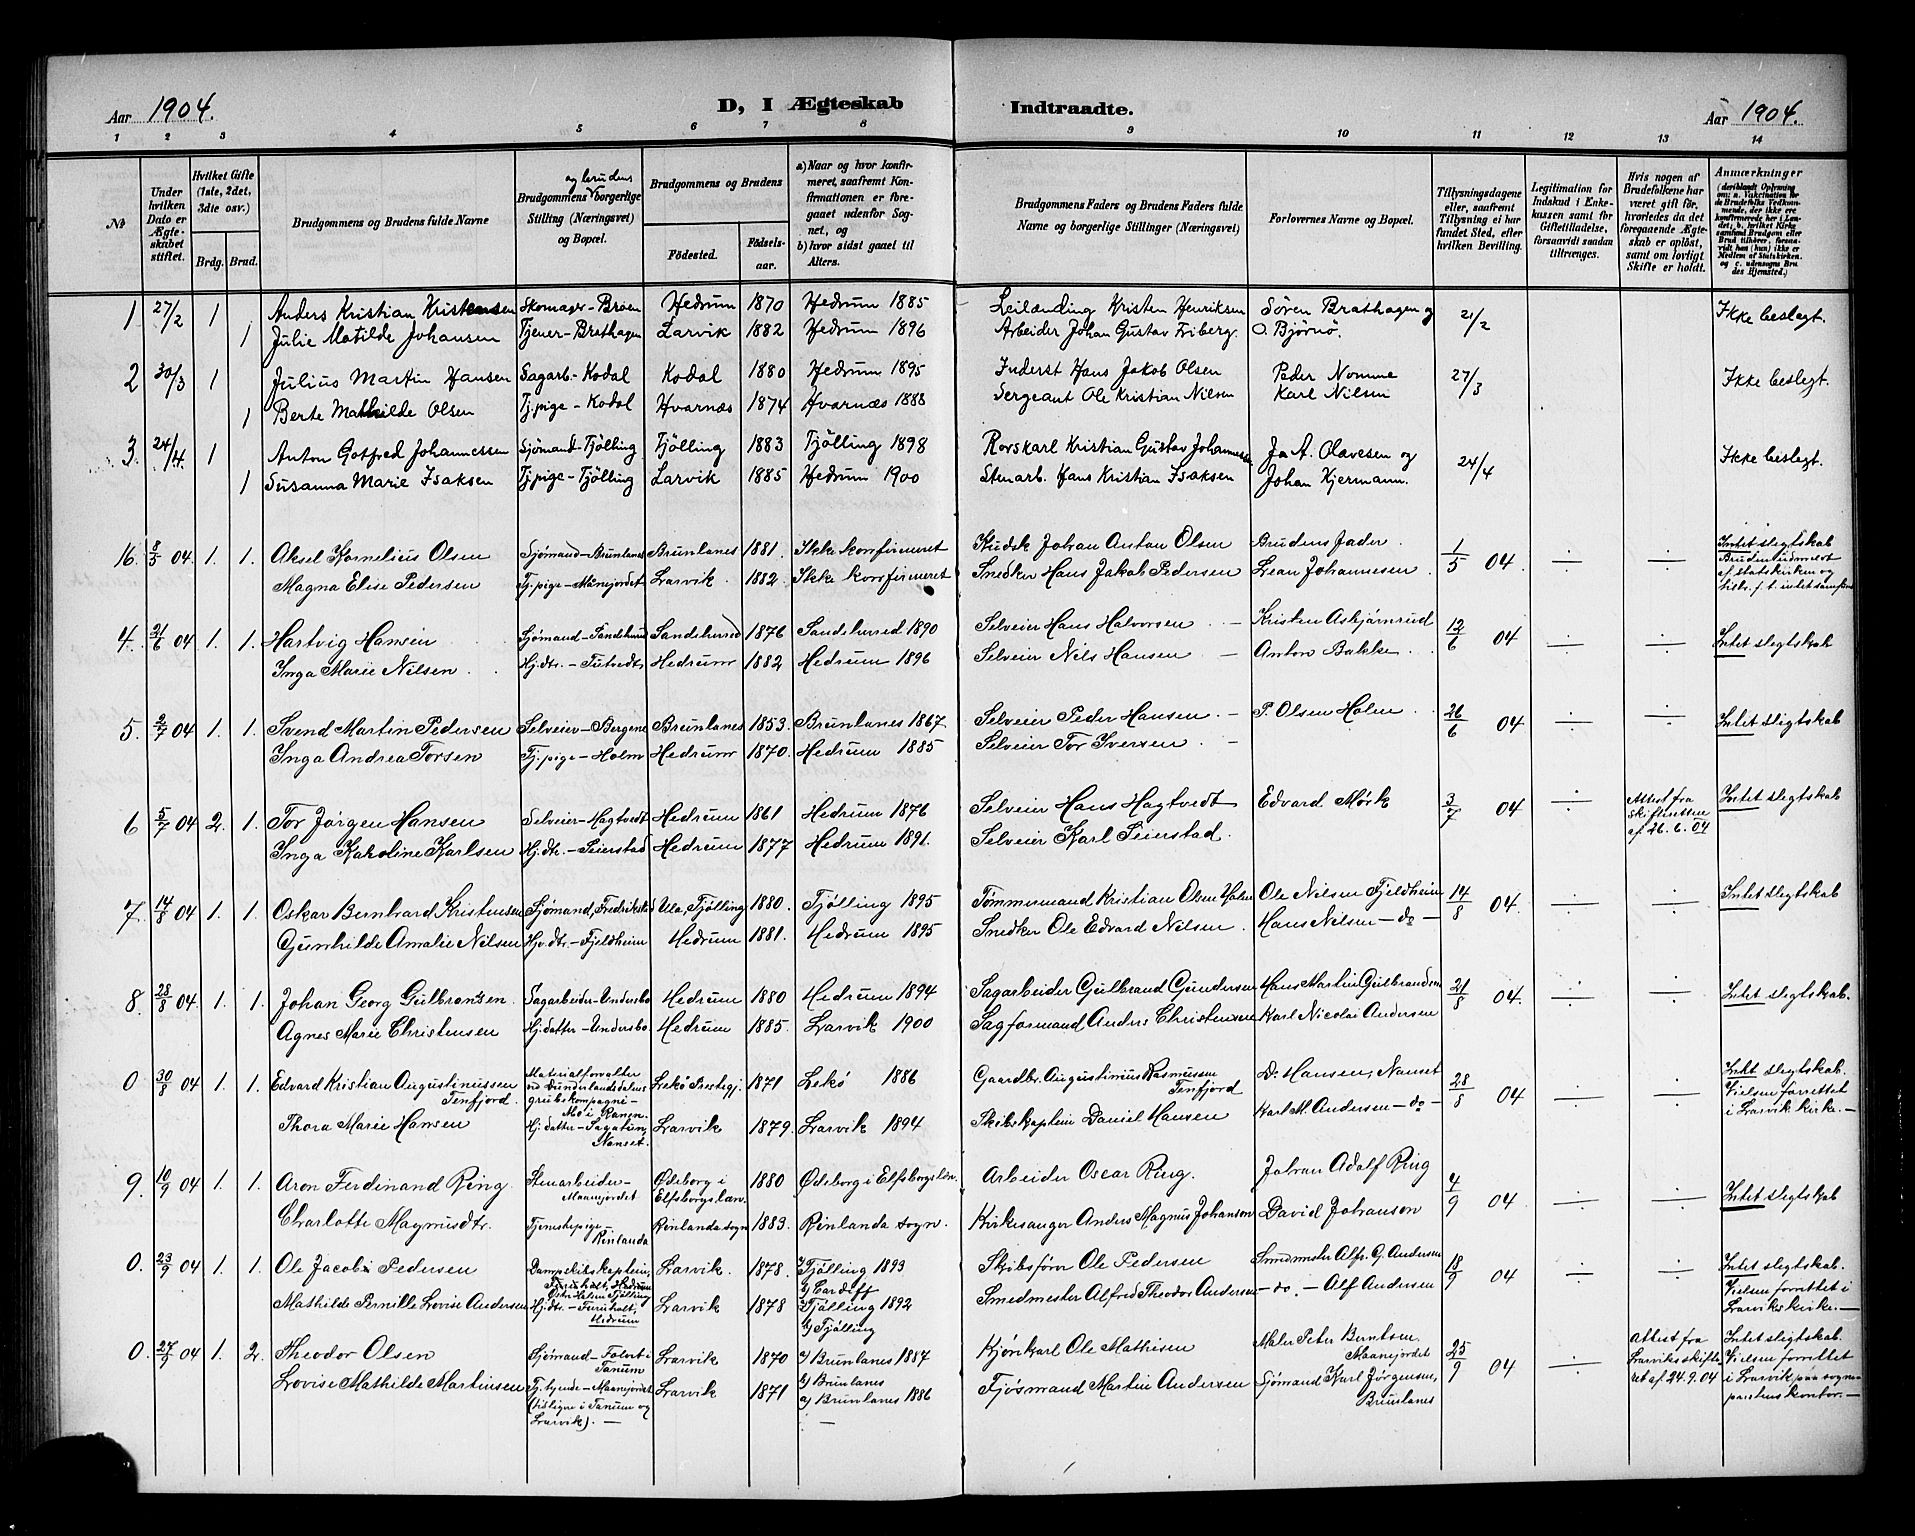 Aar 1904.
D, I Ægteskab Indtraadte.
Aar 1904.
1 2 3 4 5 6 7 8 9 10 11 12 13 14
№
Under hvilken Dato er Ægteskabet stiftet.
Hvilket Gifte (1ste, 2det, 3die osv.)
Brdg. Brud.
Brudgommens og Brudens fulde Navne
Brudgommens og brudens borgerlige Stilling (Næringsvei) og Bopæl.
Brudgommens og Brudens
Fødested.
Fødselsaar.
a) Naar og hvor konfirmeret, saafremt Konfirmationen er foregaaet udenfor Sognet, og b) hvor sidst gaaet til Alters.
Brudgommens Faders og Brudens Faders fulde Navne og borgerlige Stillinger (Næringsvei)
Forlovernes Navne og Bopæl.
Tillysningsdagene eller, saafremt Tillysning ei har fundet Sted, efter hvilken Bevilling.
Legitimation for Indskud i Enkekassen samt for Giftetilladelse, forsaavidt saadan tiltrænges.
Hvis nogen af Brudefolkene har været gift før, hvorledes da det foregaaende Ægteskab er opløst, samt om lovligt Skifte er holdt.
Anmærkninger (deriblandt Oplysning om: a. Vakcination for de Brudefolks Vedkommende, der ikke ere konfirmerede her i Landet; b. hvilket Kirkesamfund Brudgom eller Brud tilhører, forsaavidt han (hun) ikke er Medlem af Statskirken, og c. udensogns Brudes Hjemsted.)
1 27/2 1 Anders Kristian Kristensen Skomager - Broen Hedrum 1870 Hedrum 1885 Leilænding Kristen Henriksen Sören Brathagen og 21/2 Ikke beslegt.
1 Julie Matilde Johansen Tjener - Brathagen Larvik 1882 Hedrum 1896 Arbeider Johan Gustav Friberg. O. Bjørnø.
2 30/3 1 Julius Martin Hansen Sagarb. - Kodal Kodal 1880 Hedrum 1895 Inderst Hans Jakob Olsen Peder Nomme 27/3 Ikke beslegt.
1 Berte Mathilde Olsen Tj.pige - Kodal Hvarnæs 1874 Hvarnæs 1888 Sergeant Ole Kristian Nilsen Karl Nilsen
3. 24/4. 1 Anton Gotfred Johannessen Sjömand - Tjölling Tjölling 1883 Tjölling 1898 Rorskarl Kristian Gustav Johannessen Ja A. Olavesen og 24/4 Ikke beslegt.
1 Susanna Marie Isaksen Tj.pige - Tjölling Larvik 1885 Hedrum 1900 Stenarb. Hans Kristian Isaksen Johan Kjermann.
16. 8/5 04 1. 1. Aksel Kornelius Olsen Sjömand - Brunlanes Brunlanes 1881. Ikke konfirmeret Kudsk Johan Anton Olsen Brudens fader. 1/5 04 ÷ ÷ Intet slegtskab
Magna Elise Pedersen Tj.pige - Månejordet Larvik. 1882. Ikke konfirmeret Snedker Hans Jakob Pedersen Lean Johannesen Bruden udmeldt af statskirken og
4. 21/6 04 1. 1. Hartvig Hansen Sjömand - Sandeherred Sandeherred 1876 Sandeherred 1890 Selveier Hans Halvorsen - Kristen Asbjørnrud 12/6 04 ÷ ÷ Intet slegtskab
Inga Marie Nilsen Hj.dtr. - Tutvedt Hedrum 1882 Hedrum 1896 Selveier Nils Hansen - Anton Bakke
5. 2/7 04 1. 1. Svend Martin Pedersen Selveier - Bergene Brunlanes 1853. Brunlanes 1867 Selveier Peder Hansen. - P. Olsen Holm 26/6 04 ÷ ÷ Intet slegtskab
Inga Andrea Torsen Tj.pige - Holm Hedrum 1870. Hedrum 1885 Selveier Tor Iversen -
6 5/7 04 2. 1. Tor Jörgen Hansen Selveier - Hagtvedt Hedrum 1861 Hedrum 1876 Selveier Hans Hagtvedt Edvard Mørk 3/7 04 ÷ Attest fra skifteretten af 26.6.04 Intet slegtskab
Inga Karoline Karlsen Hj.dtr. - Seierstad Hedrum 1877 Hedrum 1891. Selveier Karl Seierstad.
7. 14/8 04 1. 1. Oskar Bernhard Kristensen Sjömand, Fredrikstad Ula, Tjølling 1880. Tjølling 1895 Tømmermand Kristian Olsen Holm Ole Nilsen Fjeldheim 14/8 04. ÷ ÷ Intet slegtskab
Gunhilde Amalie Nilsen Hj.dtr. - Fjeldheim Hedrum 1881. Hedrum 1895 Snedker Ole Edvard Nilsen. Hans Nilsen - do -
8. 28/8 04. 1. 1. Johan Georg Gulbransen. Sagarbeider - Undersbo Hedrum 1880 Hedrum 1894 Sagarbeider Gulbrand Gundersen Hans Martin Gulbrandsen 21/8 04. ÷ ÷ Intet slegtskab.
Agnes Marie Christensen Hj.datter - Undersbo Hedrum 1885. Larvik 1900 Sagformand Anders Christensen Karl Nicolai Andersen
0 30/8 04 1. 1. Edvard Kristian Augustinussen Tenfjord. Materialforvalter ved Dunderlandsdalens grubekompagni - Mo i Ranen. Lekø Prestegj. 1871 Lekö 1886 Gaardbr. Augustinus Rasmussen Tenfjord D. Hansen, Nanset 28/8 04 ÷ ÷ Intet slegtskab. Vielsen forrettet i Larvik kirke. -
Thora Marie Hansen Hj.datter - Sagatun, Nanset. Larvik 1879. Larvik 1894 Skibskaptein Daniel Hansen Karl M. Andersen - do -
9. 10/9 04 1. 1. Aron Ferdinand Ring. Stenarbeider - Maanejordet Ødeborg i Elfsborgslæn. 1880 Ødeborg i Elfsborgslän. Arbeider Oscar Ring. Johan Adolf Ring 4/9 04 ÷ ÷ Intet slegtskab
Charlotte Magnusdtr. Tjenestepige - Rinlanda Rinlanda sogn 1883. Rinlanda sogn. Kirkesanger Anders Magnus Johanson David Johanson
0. 23/9 04 1. 1. Ole Jacob Pedersen Dampskibskaptein, Larvik. 1878. a/ Tjölling 1893 b/ Cardiff Skibsfører Ole Pedersen Smedmester Alfr. G. Andersen 18/9 04 ÷ ÷ Intet slegtskab. Vielsen forrettet i Larviks kirke. -
Mathilde Pernille Lovise Andersen Hj.dtr. - Furuholt, Hedrum Larvik 1878 a/ Tjölling 1892 b/ Tjölling Smedmester Alfred Theodor Andersen - do. - Alf Andersen
0. 27/9 04 1. 2. Theodor Olsen Sjömand - Folert i Tanum Larvik 1870 a/ Brunlanes 1887 b/ Brunlanes Kjörikarl Ole Mathisen Maler Peter Berntsen Maanejordet 25/9 04 ÷ Attest fra Larviks skifteret af 24.9.04 Intet slegtskab. Vielsen forrettet i Larvik paa sognepræstens kontor. -
Lovise Mathilde Martinsen Tj.tjende - Maanejordet (tidligere i Tanum og Larvik). - Larvik 1871 a/ Brunlanes 1886 - Fjøsmand Martin Andersen Sjömand Karl Jörgensen, Brunlanes